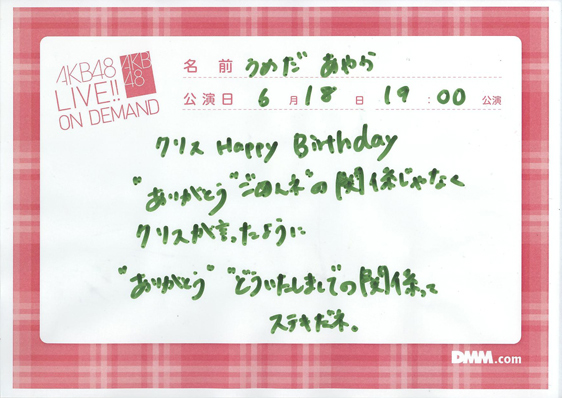 AKB48
LIVE!!
ON DEMAND
AKB
48
名 前 うめだ あやか
公演日 6 月 18 日 19 : 00 公演
クリス Happy Birthday
"ありがとう" "ごめんネ"の関係じゃなく
クリスが言ったように
"ありがとう" "どういたしまして"の関係って
ステキだネ。
DMM.com